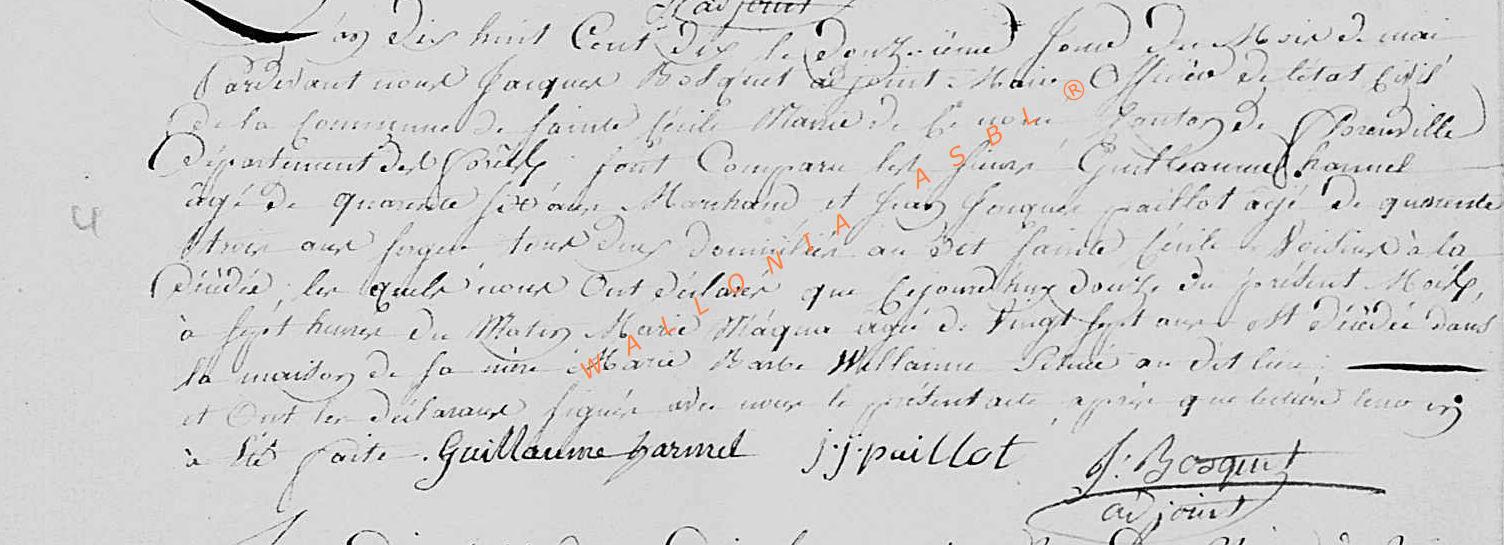 adjoint
L'an dix huit Cent dix le Douzième Jour du Mois de mai
Pardevant nous Jacques Bosquet adjoint Maire Officier de l'état Civil
de la Commune de Sainte Cécile Mairie de Canton de Florenville
Département des forêts sont Comparu les Sieurs Guilleaume hannel
âgé de quarente six ans Marchand et Jean Jacques paillot agé de quarente
trois ans tous deux domiciliés au dit Sainte Cécile Voisins à la
Décédée, les quels nous Ont déclarés que Cejourdhuy douze du présent Mois,
à sept heures du Matin Marie Maqua agé de Vingt sept ans est Décédée dans
la maison de sa mère Marie Barbe Willaime Située au dit lieu
et Ont les déclarans signés avec nous le présent acte après que lecture leur en
à été faite. Guillaume harmel j.j.paillot J: Bosquet
adjoint
4
WALLONIA ASBL ®